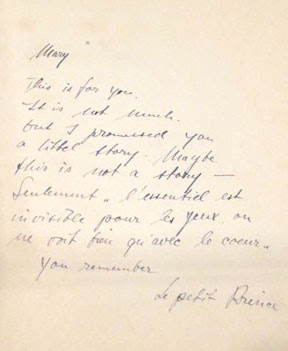 Mary
This is for you.
It is not much.
but I promessed you
a littel story. Maybe
this is not a story –
Seulement „ l'essentiel est
invisible pour les yeux on
ne voit bien qu'avec le coeur„
You remember
Le petit Prince